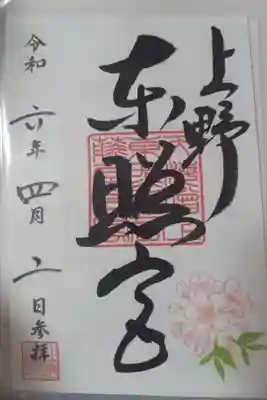 上野
東照宮
令和六年四月二日参拝